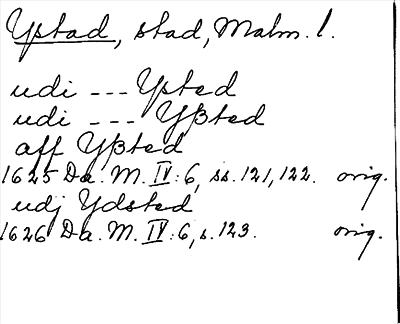 Ystad, stad, Malm. l.
udi --- Ysted
udi --- Yßted
aff Yßted
1625 Da. M. IV: 6, ss. 121, 122. orig.
udj Ydsted
1626 Da. M. IV: 6, s. 123. orig.